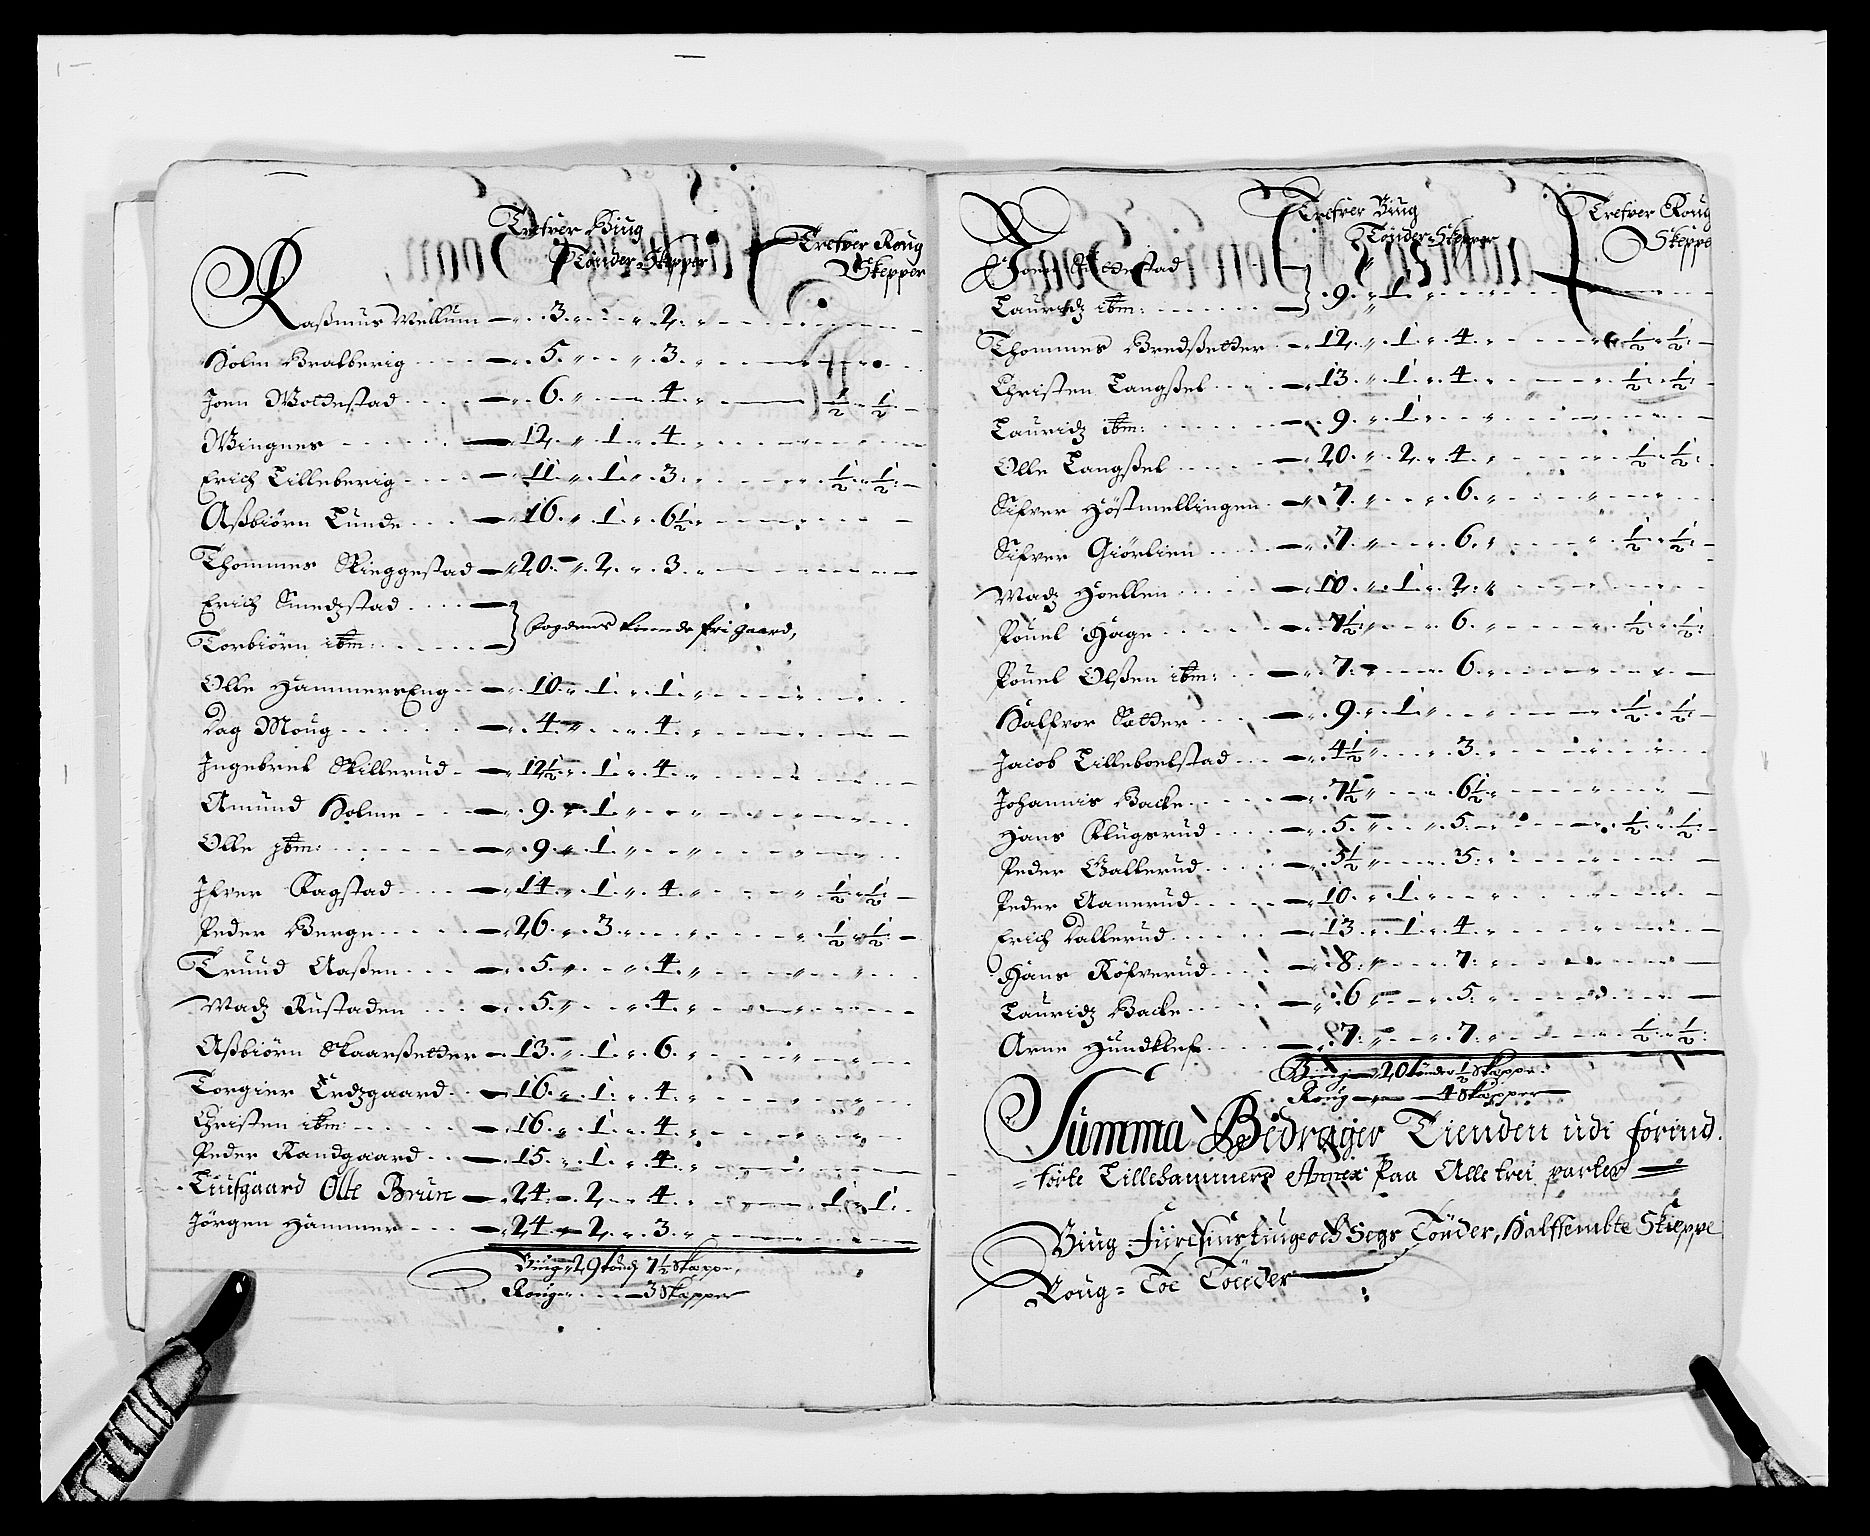 Trefver Biug
Tönder Skepper
Trefver Roug
Skepper
Rasmus Wellum 3. 2.
Holm Bralberig 5. 3.
Joen Woldestad 6. 4. ½ ½
Wingnes 12. 1. 4.
Erich Lilleberig 11. 1. 3. ½ ½
Aßbiörn Lunde 16. 1. 6½
Thommes Skieggestad 20. 2. 3.
Erich Smedzstad
Torbiörn ibm: fri gaard,
Olle HammersEng 10. 1. 1.
Dag Moug 4. 4.
Ingebrel Skillerud 12½ 1. 4.
Amund Holme 9. 1.
Olle ibm: 9. 1.
Ifver Kagstad 14. 1. 4. ½ ½
Peder Berge 26. 3. ½ ½
Trund Aaßen 5. 4.
Madz Rustaden 5. 4.
Aßbiörn Skaarßetter 13. 1. 6.
Torgier Erdzgaard 16. 1. 4.
Christen ibm: 16. 1. 4.
Peder Randgaard 15. 1. 4.
Liusgaard Olle Brun 24. 2. 4. 1. 1.
Jörgen Hammer 24. 2. 3.
Biug 29 tönd 7½ Skeppe,
Roug 3 Skepper
Trefver Biug
Tönder Skepper
Trefver Roug
Skeppe
Joen
Lauridz ibm: 9. 1.
Thommes Bredßetter 12. 1. 4. ½ ½
Christen Langßel 13. 1. 4. ½ ½
Lauridz ibm: 9. 1.
Olle Langßel 20. 2. 4. ½ ½
Sifver Höstmellingen 7. 6.
Sifver Giörlien 7. 6. ½ ½
Madz Hoellen 10. 1. 2.
Pouel Hage 7½ 6. ½ ½
Pouel Olßen ibm: 7. 6.
Halfvor Sætter 9. 1. ½ ½
Jacob Lilleboelstad 4½ 3.
Johannis Backe 7½ 6½
Hans Klugsrud 5. 5. ½ ½
Peder Ballerud 5½ 5.
Peder Aanerud 10. 1.
Erich Dallerud 13. 1. 4.
Hans Röfverud 8. 7.
Lauridz Backe 6. 5.
Arne Hundklef 7. 7. ½ ½
Biug 20 tönder ½ Skeppe
Roug 4 Skepper
Summa Bedrager Tienden udi forind
= förte Lillehammers Annex Paa Alle trei parter
Biug Fiiresinstiuge och Segs Tönder, Halfsembte Skieppe
Roug = Toe Tönder